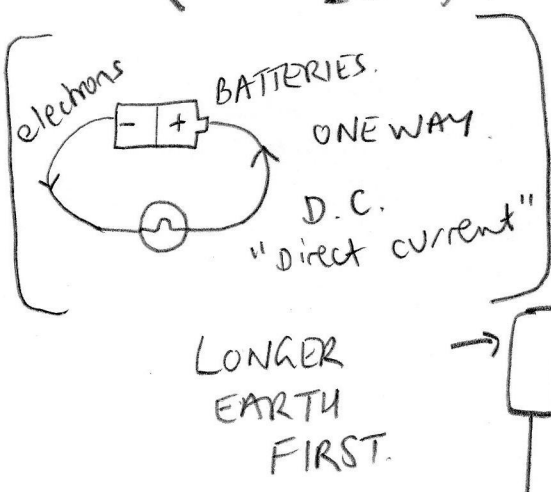 electrons
BATTERIES.
- +
ONE WAY.
D.C.
"Direct current"
LONGER
EARTH
FIRST.